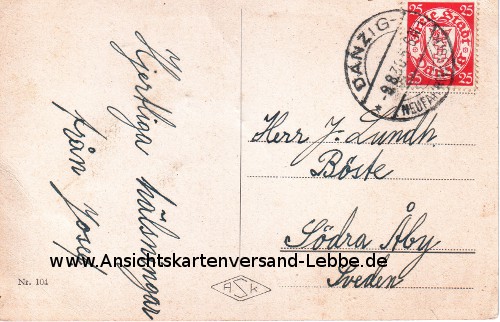 Hjertliga hälsningar
från Josef
25 25
Freie Stadt
Danzig
DANZIG-
NEUFAHRWASSER
Herr J. Lundh.
Böste
Södra Åby
Sveden
www.Ansichtskartenversand-Lebbe.de
Nr. 104
ASK